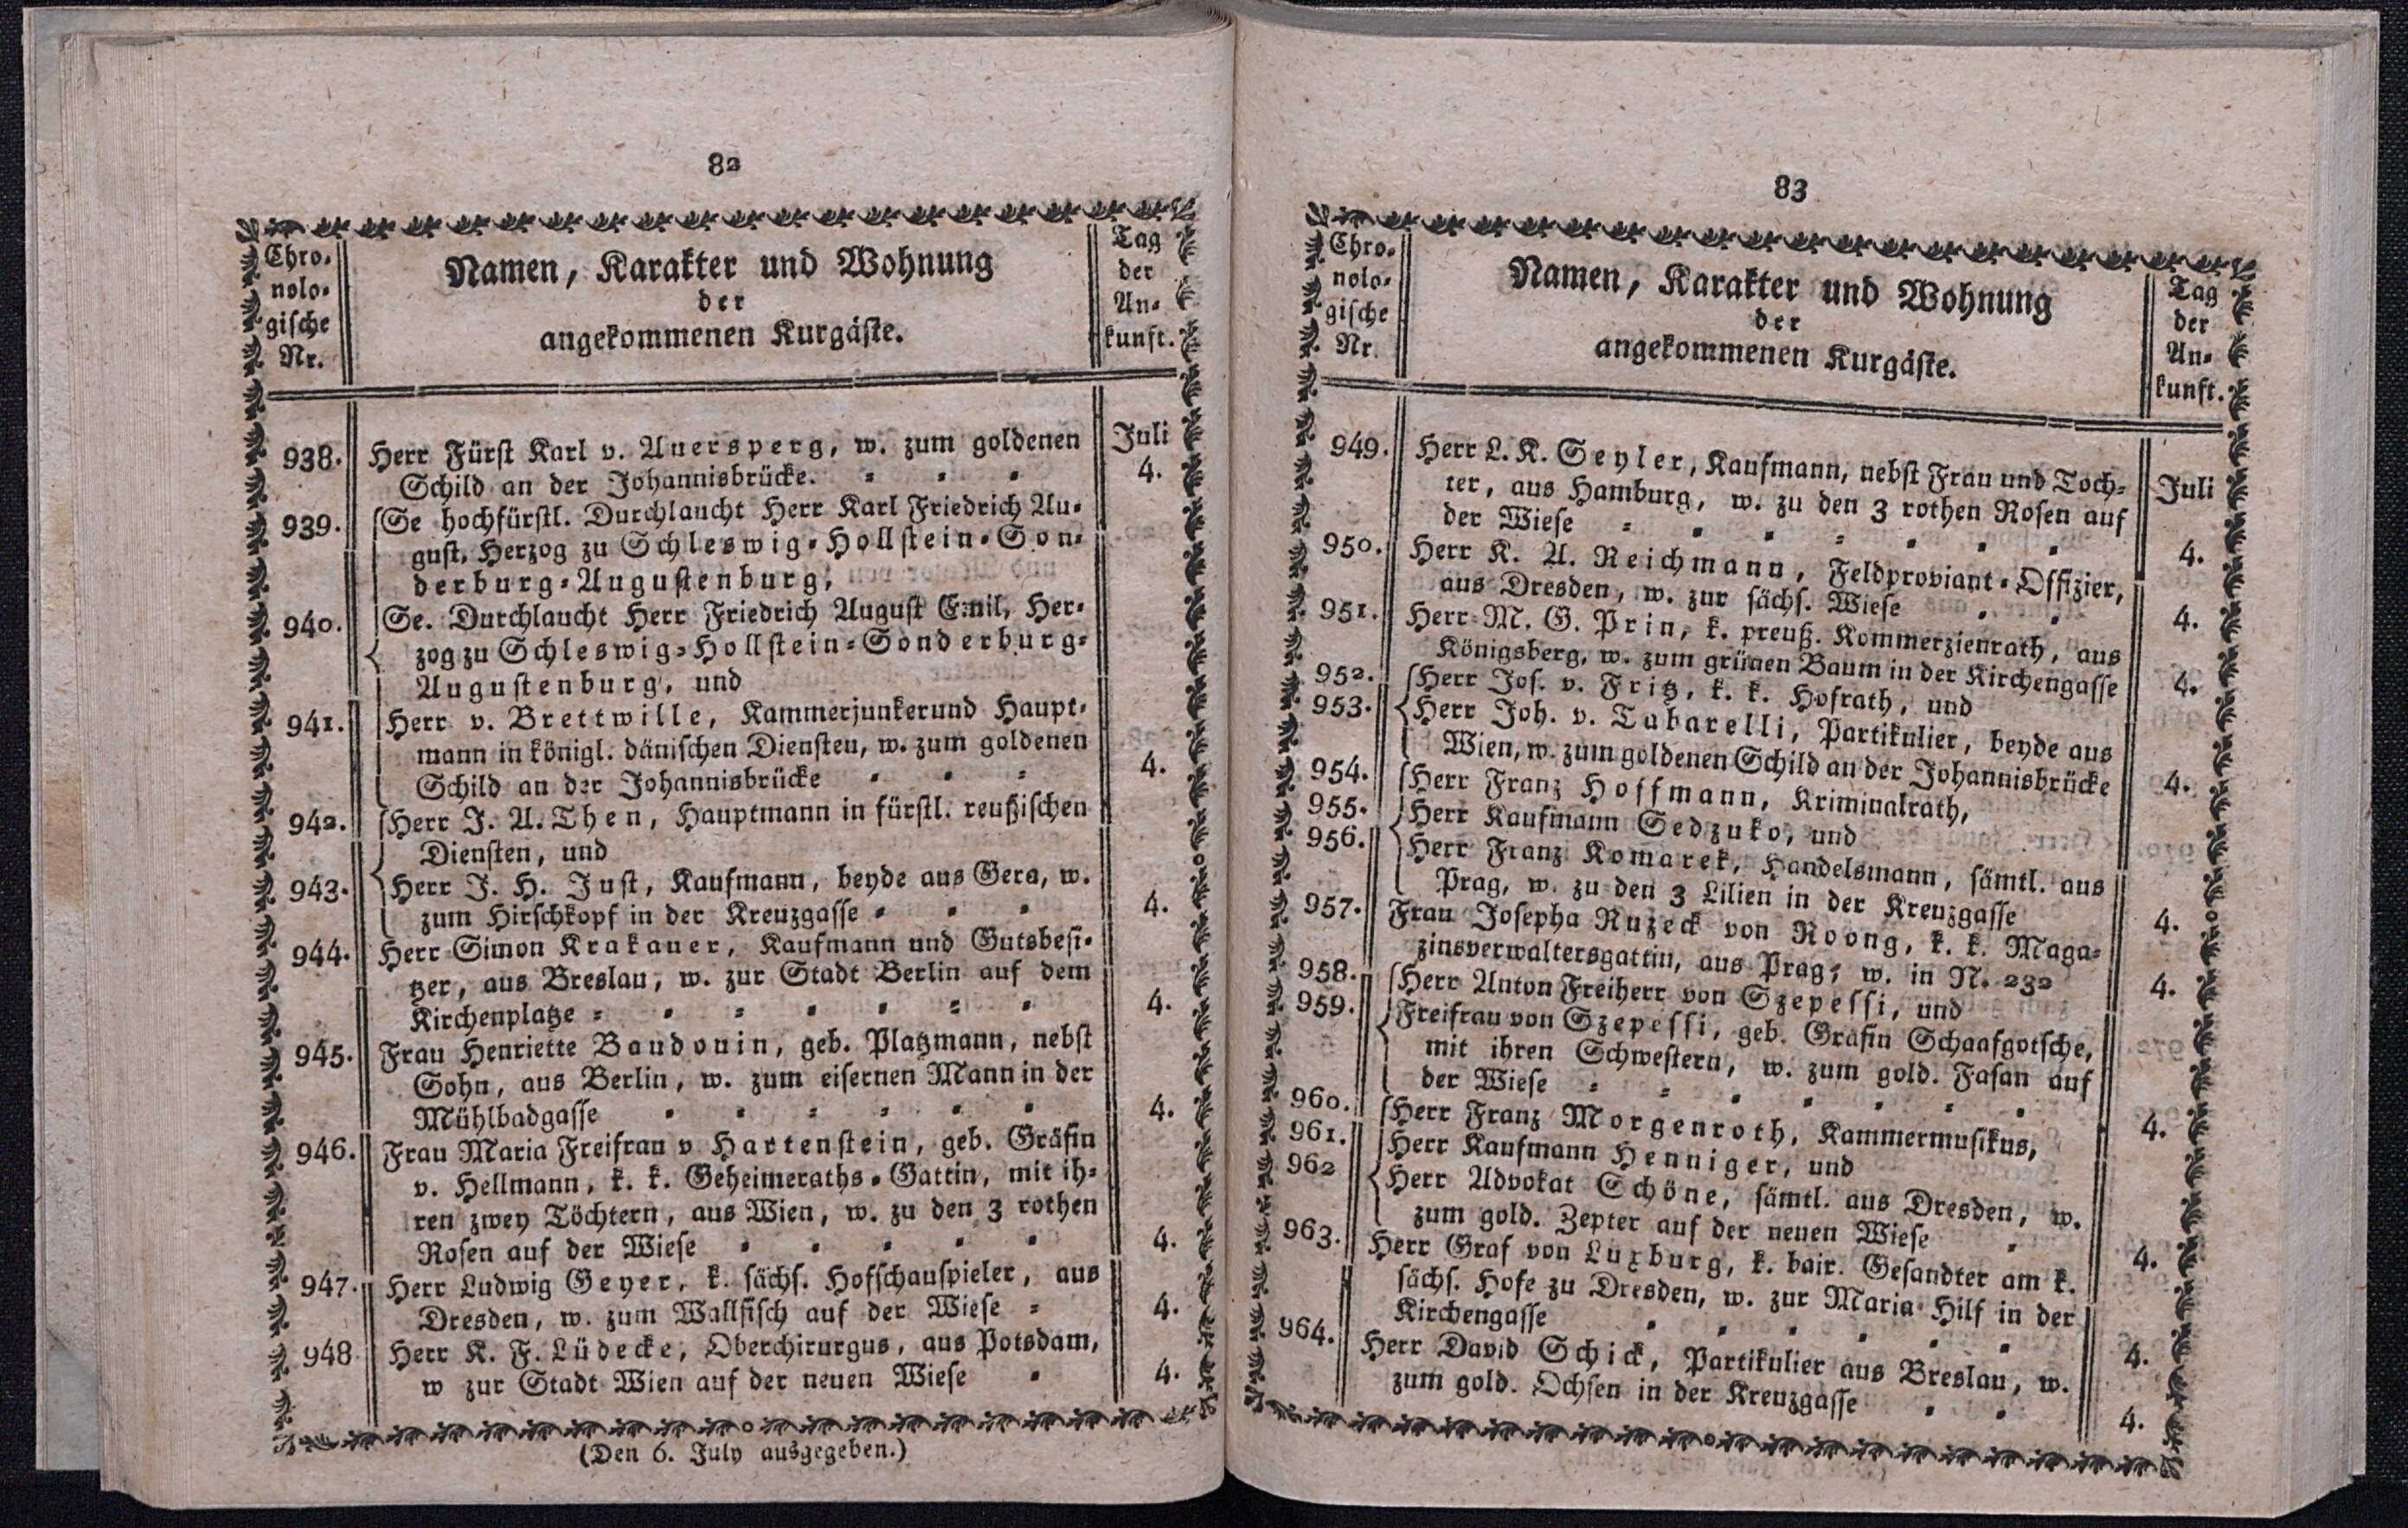 82
Chro-
nolo-
gische
Nr.
Namen, Karakter und Wohnung
der
angekommenen Kurgäste.
Tag
der
An-
kunft.
Juli
938. Herr Fürst Karl v. Auersperg, w. zum goldenen
Schild an der Johannisbrücke. - - - 4.
939. Se hochfürstl. Durchlaucht Herr Karl Friedrich Au-
gust, Herzog zu Schleswig-Hollstein-Son-
derburg-Augustenburg,
940. Se. Durchlaucht Herr Friedrich August Emil, Her-
zog zu Schleswig-Hollstein-Sonderburg-
Augustenburg, und
941. Herr v. Brettwille, Kammerjunkerund Haupt-
mann in königl. dänischen Diensten, w. zum goldenen
Schild an der Johannisbrücke - - - 4.
942. Herr J. A. Then, Hauptmann in fürstl. reußischen
Diensten, und
943. Herr J. H. Just, Kaufmann, beyde aus Gera, w.
zum Hirschkopf in der Kreuzgasse - - - 4.
944. Herr Simon Krakauer, Kaufmann und Gutsbesi-
tzer, aus Breslau, w. zur Stadt Berlin auf dem
Kirchenplatze - - - - - - - 4.
945. Frau Henriette Baudouin, geb. Platzmann, nebst
Sohn, aus Berlin, w. zum eisernen Mann in der
Mühlbadgasse - - - - - - 4.
946. Frau Maria Freifrau v Hartenstein, geb. Gräfin
v. Hellmann, k. k. Geheimeraths-Gattin, mit ih-
ren zwey Töchtern, aus Wien, w. zu den 3 rothen
Rosen auf der Wiese - - - - - 4.
947. Herr Ludwig Geyer, k. sächs. Hofschauspieler, aus
Dresden, w. zum Wallfisch auf der Wiese - 4.
948 Herr K. F. Lüdecke, Oberchirurgus, aus Potsdam,
w zur Stadt Wien auf der neuen Wiese - 4.
(Den 6. July ausgegeben.)
83
Chro-
nolo-
gische
Nr.
Namen, Karakter und Wohnung
der
angekommenen Kurgäste.
Tag
der
An-
kunft.
Juli
949. Herr L. K. Seyler, Kaufmann, nebst Frau und Toch-
ter, aus Hamburg, w. zu den 3 rothen Rosen auf
der Wiese - - - - - - - 4.
950. Herr K. A. Reichmann, Feldproviant-Offizier,
aus Dresden, w. zur sächs. Wiese - - 4.
951. Herr M. G. Prin, k. preuß. Kommerzienrath, aus
Königsberg, w. zum grünen Baum in der Kirchengasse 4.
952. Herr Jos. v. Fritz, k. k. Hofrath, und
953. Herr Joh. v. Tabarelli, Partikulier, beyde aus
Wien, w. zum goldenen Schild an der Johannisbrücke 4.
954. Herr Franz Hoffmann, Kriminalrath,
955. Herr Kaufmann Sedzuko, und
956. Herr Franz Komarek, Handelsmann, sämtl. aus
Prag, w. zu den 3 Lilien in der Kreuzgasse 4.
957. Frau Josepha Ruzeck von Roong, k. k. Maga-
zinsverwaltersgattin, aus Prag, w. in N. 232 4.
958. Herr Anton Freiherr von Szepessi, und
959. Freifrau von Szepessi, geb. Gräfin Schaafgotsche,
mit ihren Schwestern, w. zum gold. Fasan auf
der Wiese - - - - - - - 4.
960. Herr Franz Morgenroth, Kammermusikus,
961. Herr Kaufmann Henniger, und
962 Herr Advokat Schöne, sämtl. aus Dresden, w.
zum gold. Zepter auf der neuen Wiese - 4.
963. Herr Graf von Luxburg, k. bair. Gesandter am k.
sächs. Hofe zu Dresden, w. zur Maria Hilf in der
Kirchengasse - - - - - - 4.
964. Herr David Schick, Partikulier aus Breslau, w.
zum gold. Ochsen in der Kreuzgasse - - 4.